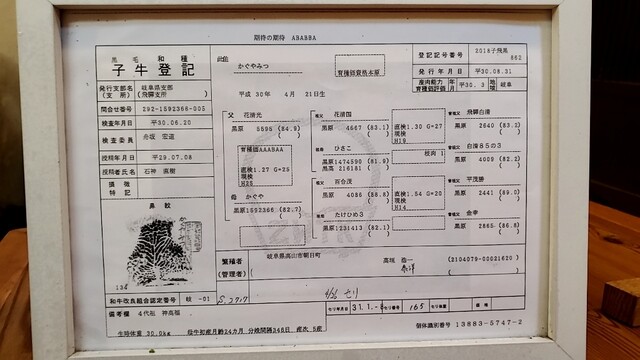 期待の期待 ABABBA
黒毛和種
子牛登記
此牝
かぐやみつ
育種価資格本原
登記記号番号 2018子飛黒
862
発行年月日 平30.08.31
産肉能力 年月 平30. 3 地域 岐阜
育種価評価
発行支部名 岐阜県支部
(支所) (飛騨支所)
平成 30年 4月 21日生
問合せ番号 292-1592368-005
検査年月日 平30.06.20
検査委員
授精年月日 平29.07.08
授精師氏名 石神 直樹
損徴
特記
鼻紋
父 花清光
黒原 5595 (84.9)
育種価AAABAA
直検1.27 G=25
現検
H25
母 かぐや
黒原1652366 (82.7)
祖父 花清国
黒原 4667 (83.1)
祖母 ひさこ
黒原1474590 (81.9)
黒高 216181
祖父 百合茂
黒原 4086 (86.8)
祖母 たけひめ3
黒原1231413 (82.1)
直検1.30 G=27
現検
H19
枝肉 1
直検1.54 G=20
現検
H14
曽祖父 飛騨白清
黒原 2640 (83.2)
曽祖父 白清85の3
黒原 4009 (82.2)
曽祖父 平茂勝
黒原 2441 (89.0)
曽祖父 金幸
黒原 2865 (86.8)
繁殖者
(管理者)
岐阜県高山市朝日町
高垣 浩一
(2104079-00021620)
和牛改良組合認定番号 岐 -01
備考欄 4代祖 神高福
セリ年月日 31.1.-8
セリ番号 165
セリ体重
価格
生時体重 30.0kg 母牛初産月齢24カ月 分娩間隔348日 産次 5産
個体識別番号 13883-5747-2